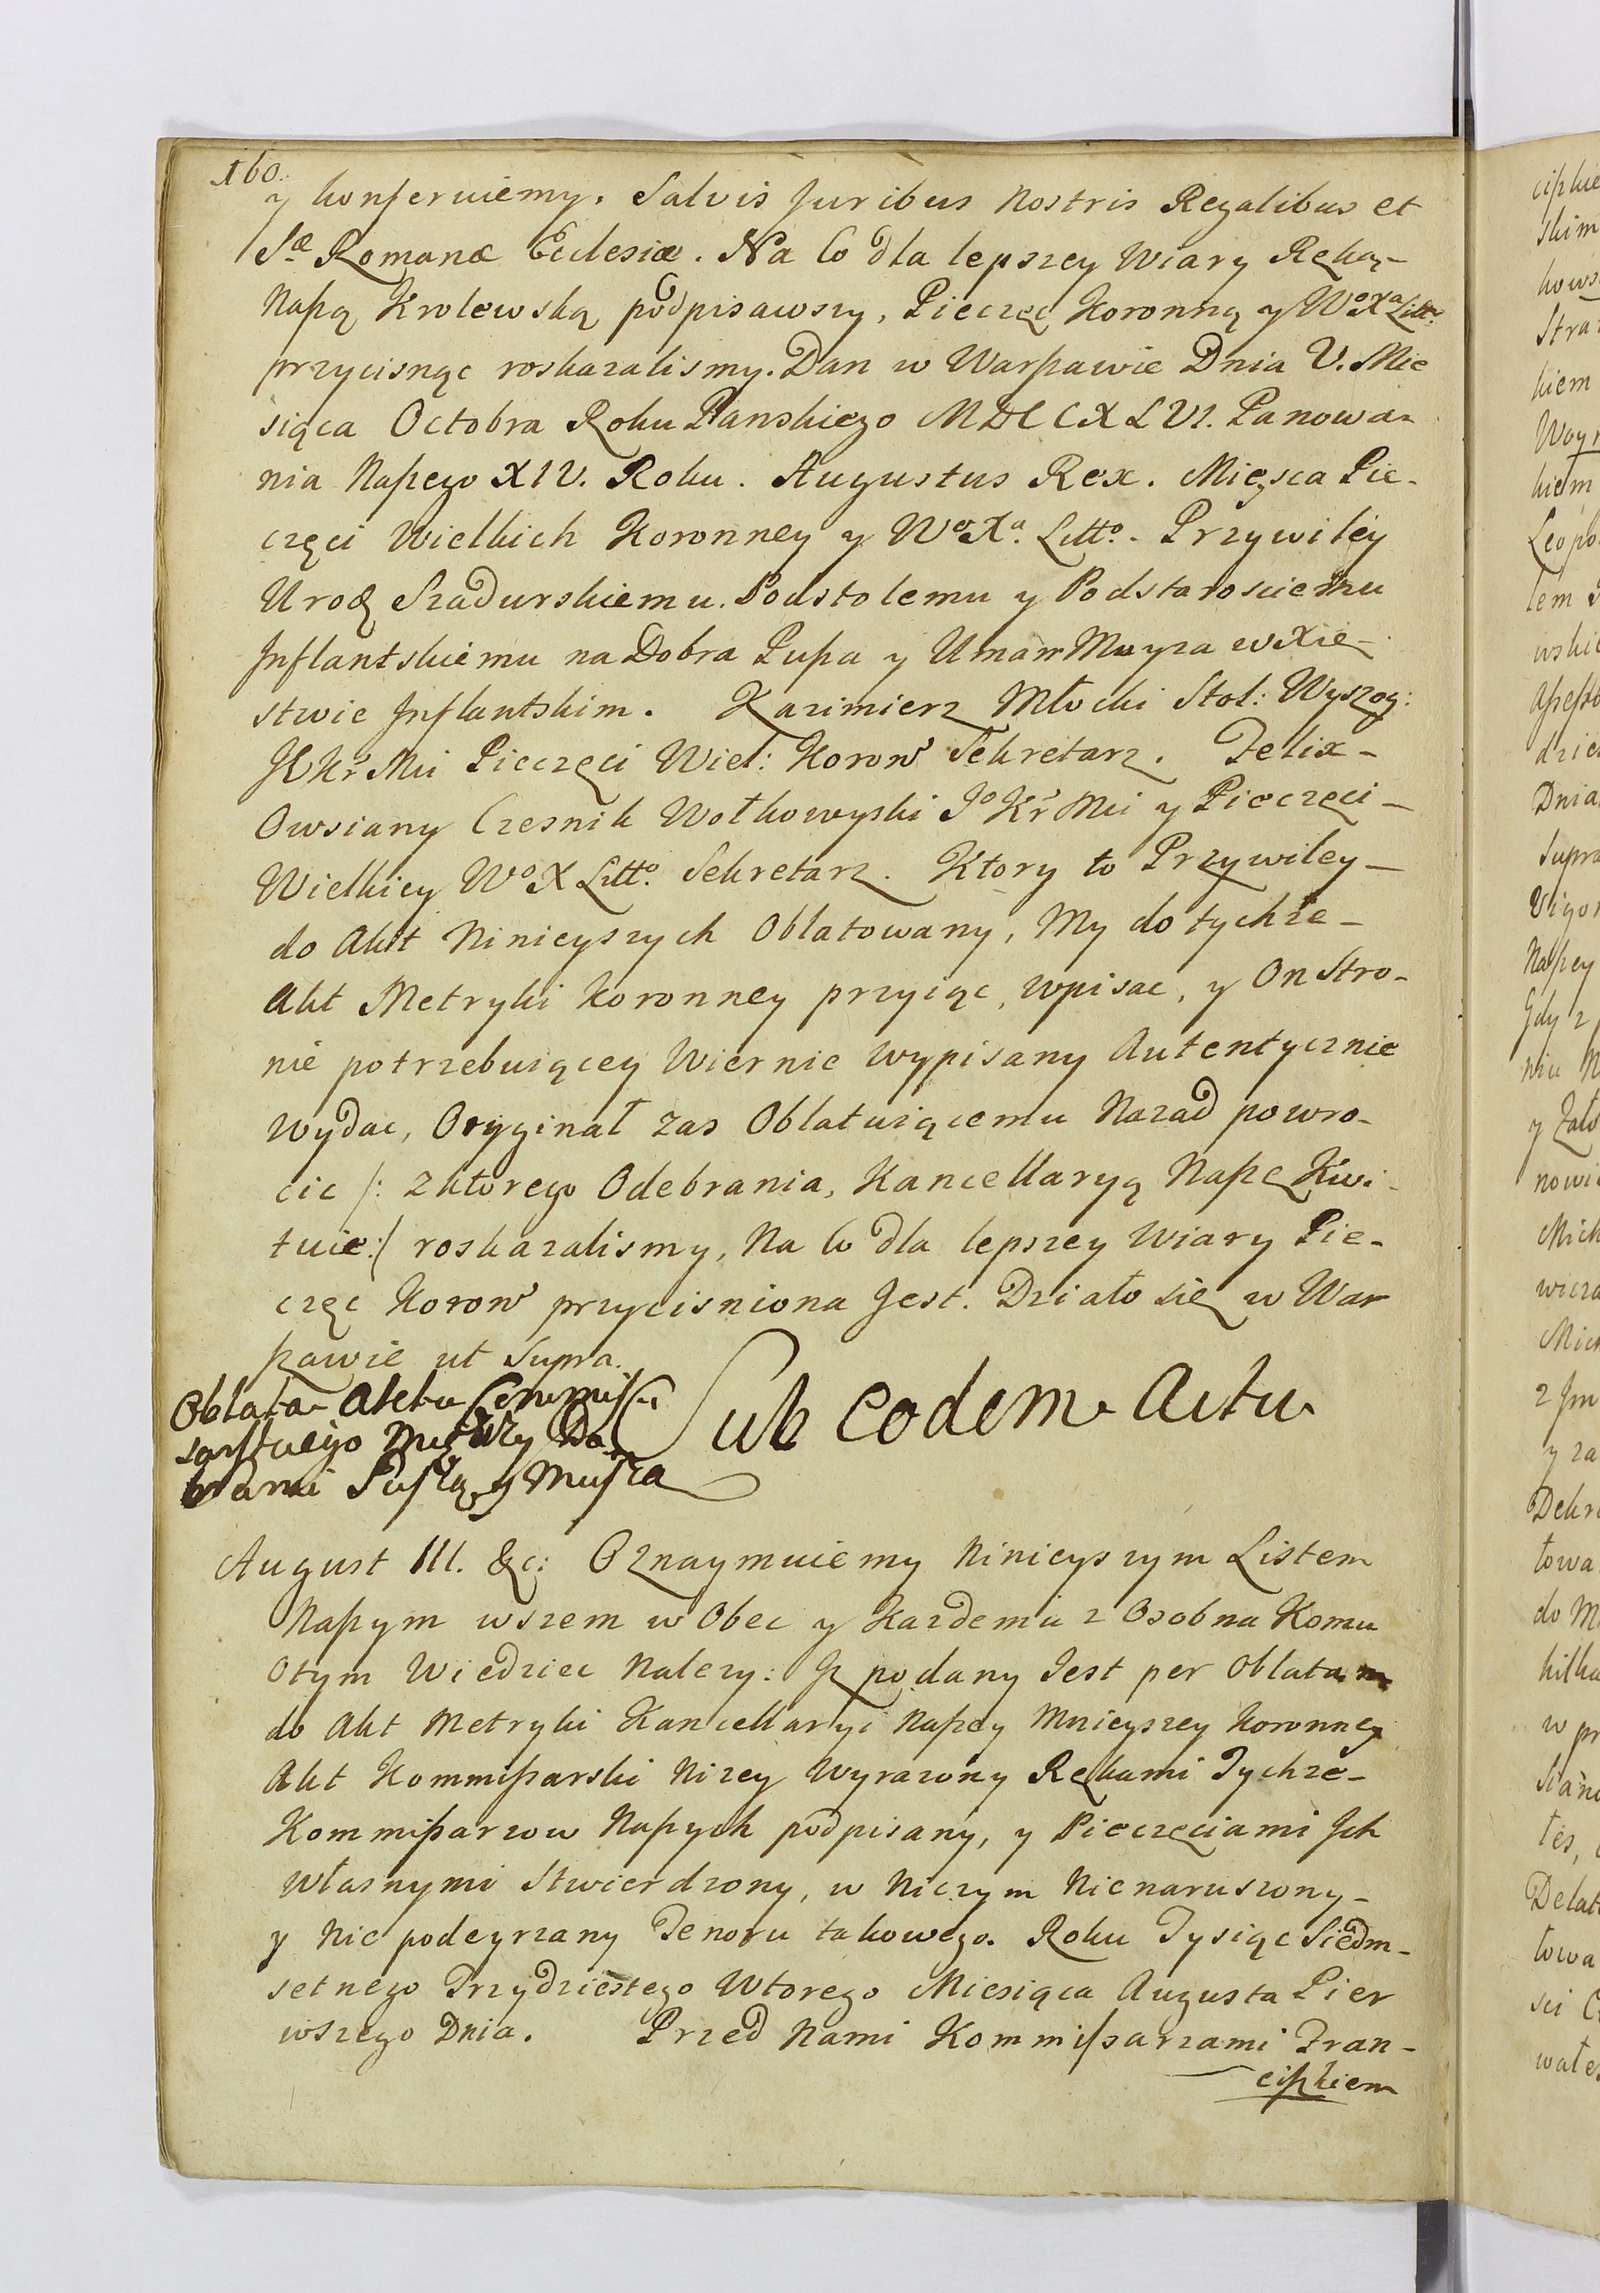 160.
y konferuiemy. Salvis Juribus Nostris Regalibus et
Sæ Romanæ Ecclesiæ. Na co dla lepszey Wiary Ręką
Naßą Krolewską podpisawszy, Pieczęć Koronną y Wo Xa Litto
przycisnąc roskazalismy. Dan w Warßawie Dnia V. Mie
siąca Octobra Roku Pańskiego MDCCXLVI. Panowa-
nia Naßego XIV. Roku. Augustus Rex. Mieysca Pie-
częci Wielkich Koronney y Wo Xa Litto. Przywiley
Urodz Szadurskiemu. Podstolemu y Podstarosciemu
Inflantskiemu na Dobra Pußa y Muyza w Xię-
stwie Inflantskim. Kazimierz Młocki Stol: Wyszog:
JKr Mci Pieczęci Wiel: Koron Sekretarz. Felix-
Owsiany Czesnik Wołkowyski Jo Kr Mci y Pieczęci-
Wielkiey Wo X Litto. Sekretarz. Ktory to Przywiley-
do Akt Ninieyszych Oblatowany, My do tychże-
Akt Metryki Koronney przyiąc, wpisac, y On Stro-
nie potrzebuiącey Wiernie wypisany Autentycznie
wydac, Oryginał zas Oblatuiącemu Nazad powro-
cic /: z ktorego Odebrania, Kancellaryą Naßę Kwi-
tuie:/ roskazalismy, Na co dla lepszey Wiary Pie-
częc Koron przycisniona Jest. Działo się w War
ßawie ut Supra.
Oblata Aktu Commis-
sarskiego między Do-
brami Pußą y Mußa
Sub eodem Actu
August III. &c: Oznaymuiemy Ninieyszym Listem
Naßym wszem w Obec y Kazdemu z Osobna Komu
Otym Wiedziec Nalezy: Jz podany Jest per Oblatam
do Akt Metryki Kancellaryi Naßey Mnieyszey Koronney
Akt Kommißarski Nizey Wyrazony Rękami Tychże-
Kommißarzow Naßych podpisany, y Pieczęciami Jch
Własnymi Stwierdzony, w Niczym Nienaruszony-
y Nie podeyrzany Tenoru takowego. Roku Tysiąc Siedm-
setnego Trzydziestego Wtorego Miesiąca Augusta Pier
wszego Dnia. Przed Nami Kommissarzami Fran-
cißkiem